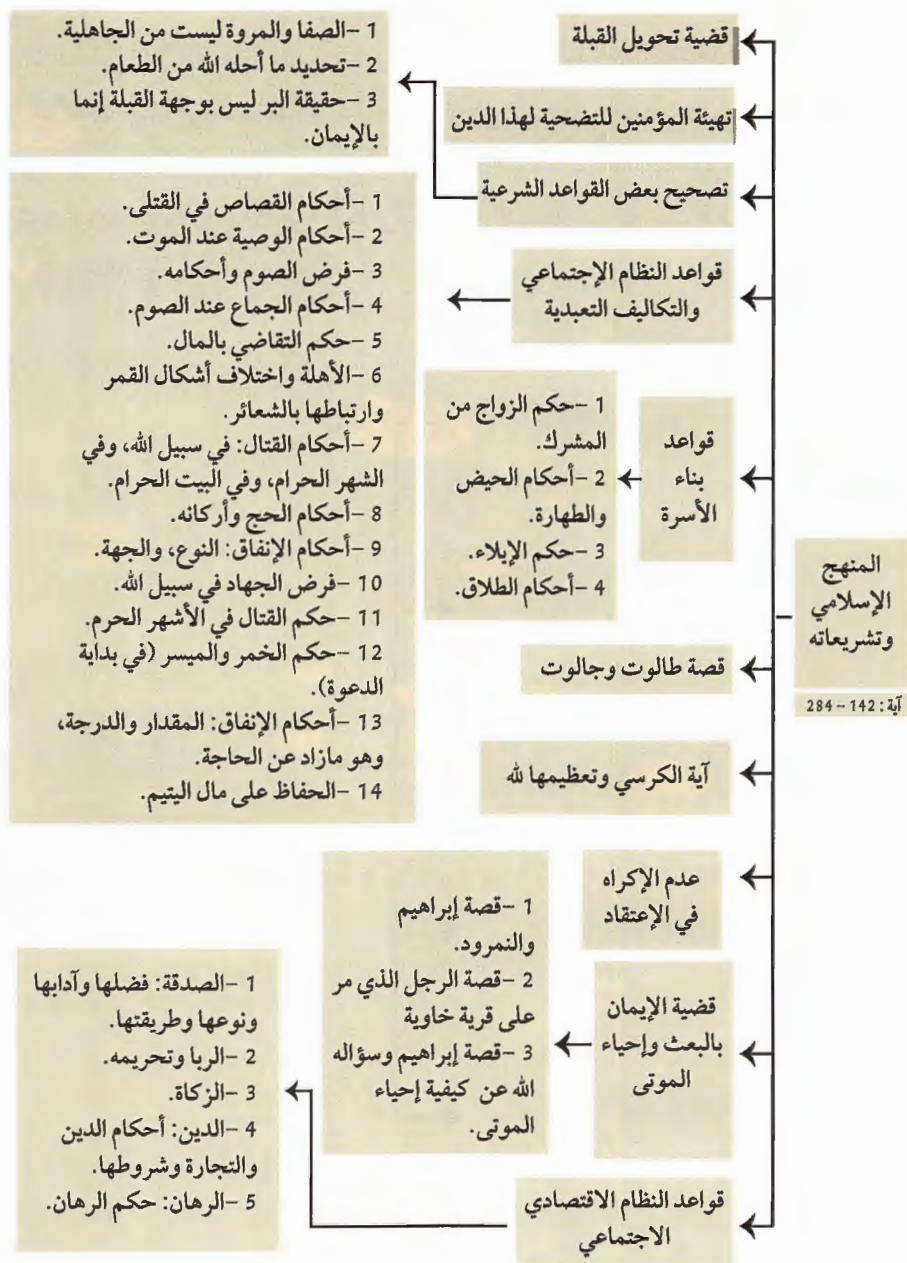 المنهج
الإسلامي
وتشريعاته
آية: 142 – 284
قضية تحويل القبلة
تهيئة المؤمنين للتضحية لهذا الدين
تصحيح بعض القواعد الشرعية
1 –الصفا والمروة ليست من الجاهلية.
2 –تحديد ما أحله الله من الطعام.
3 –حقيقة البر ليس بوجهة القبلة إنما
بالإيمان.
قواعد النظام الإجتماعي
والتكاليف التعبدية
1 –أحكام القصاص في القتلى.
2 –أحكام الوصية عند الموت.
3 –فرض الصوم وأحكامه.
4 –أحكام الجماع عند الصوم.
5 –حكم التقاضي بالمال.
6 –الأهلة واختلاف أشكال القمر
وارتباطها بالشعائر.
7 –أحكام القتال: في سبيل الله، وفي
الشهر الحرام، وفي البيت الحرام.
8 –أحكام الحج وأركانه.
9 –أحكام الإنفاق: النوع، والجهة.
10 –فرض الجهاد في سبيل الله.
11 –حكم القتال في الأشهر الحرم.
12 –حكم الخمر والميسر (في بداية
الدعوة).
13 –أحكام الإنفاق: المقدار والدرجة،
وهو مازاد عن الحاجة.
14 –الحفاظ على مال اليتيم.
قواعد
بناء
الأسرة
1 –حكم الزواج من
المشرك.
2 –أحكام الحيض
والطهارة.
3 –حكم الإيلاء.
4 –أحكام الطلاق.
قصة طالوت وجالوت
آية الكرسي وتعظيمها لله
عدم الإكراه
في الإعتقاد
قضية الإيمان
بالبعث وإحياء
الموتى
1 –قصة إبراهيم
والنمرود.
2 –قصة الرجل الذي مر
على قرية خاوية
3 –قصة إبراهيم وسؤاله
الله عن كيفية إحياء
الموتى.
قواعد النظام الاقتصادي
الاجتماعي
1 –الصدقة: فضلها وآدابها
ونوعها وطريقتها.
2 –الربا وتحريمه.
3 –الزكاة.
4 –الدين: أحكام الدين
والتجارة وشروطها.
5 –الرهان: حكم الرهان.